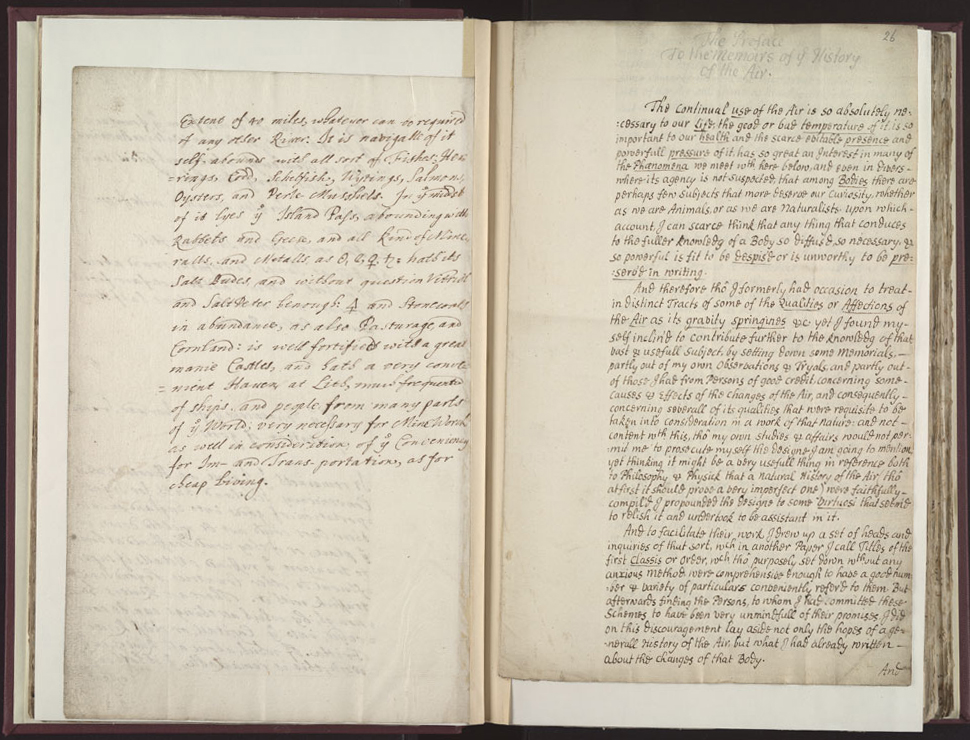 Extent of 40 miles, whatever can be required
of any other River: It is navigable of it
self: abounds with all sort of Fishes: Her=
=rings, Codd, Schellfish, Wytings, Salmons,
Oysters, and Perle Musshels. In yͤ midst
of it lyes yͤ Island Pass, abounding with
Rabbets and Geese, and all kind of Mine,
ralls, and Metalls as
Salt
and Salt Peter henough: and Stonecoals
in abundance, as also Pasturage, and
Cornland: is well fortified with a great
manie Castles, and hath a very conve
=nient Haven at Lith, much frequented
of ships, and people from many parts
of yͤ World; very necessary for Mine Works
as well in consideration, of yͤ Conveniency
for Im- and Trans-portation, as for
cheap living.
26
The Preface
To the Memoirs of yͤ History
of the Air.
The continual use of the Air is so absolutely ne:
:cessary to our life; the good or bad temperature of it, is so
important to our health and the scarce evitable presence and
powerfull pressure of it, has so great an Interest in many of
the Phænomena we meet with here below, and even in divers—
where its agency is not suspected, that among Bodies there are
perhaps few Subjects that more deserve our Curiosity, whether
as we are Animals, or as we are Naturalists: upon which—
account, I can scarce think that any thing that conduces
to the fuller knowledg of a Body so diffus'd, so necessary, &
so powerful is fit to be despis'd or is unworthy to be pre:
:serv'd in writing.
And therefore tho I formerly had occasion to treat—
in distinct Tracts of some of the Qualities or Affections of
the Air as its gravity springiness &c; yet I found my—
self inclin'd to contribute further to the knowledg of that
vast & usefull subject, by setting down some Memorials,—
partly out of my own Observations & Tryals, and partly out—
of those I had from Persons of good credit, concerning some—
Causes & Effects of the changes of the Air, and consequently—
concerning severall of its qualities that were requisite to be
taken into consideration in a work of that nature: and not—
content wth this, tho my own studies & affairs would not per:
:mit me to prosecute my self the designe I am going to mention,
yet thinking it might be a very usefull thing in reference both
to Philosophy & Physick that a natural History of the Air (tho
at first it should prove a very imperfect one) were faithfully—
compil'd I propounded the designe to some Virtuosi that seem'd
to relish it and undertook to be assistant in it.
And to facilitate their work I drew up a set of heads and
inquiries of that sort, wch in another Paper I call Titles of the
first Classis or Order, wch tho purposely set down without any
anxious method, were comprehensive enough to have a good num
ber & variety of particulars conveniently referr'd to them. But
afterwards finding the Persons, to whom I had committed these—
Schemes to have been very unmindfull of their promises, I did
on this discouragement lay aside not only the hopes of a ge=
:nerall History of the Air, but what I had already written—
about the changes of that Body.
And